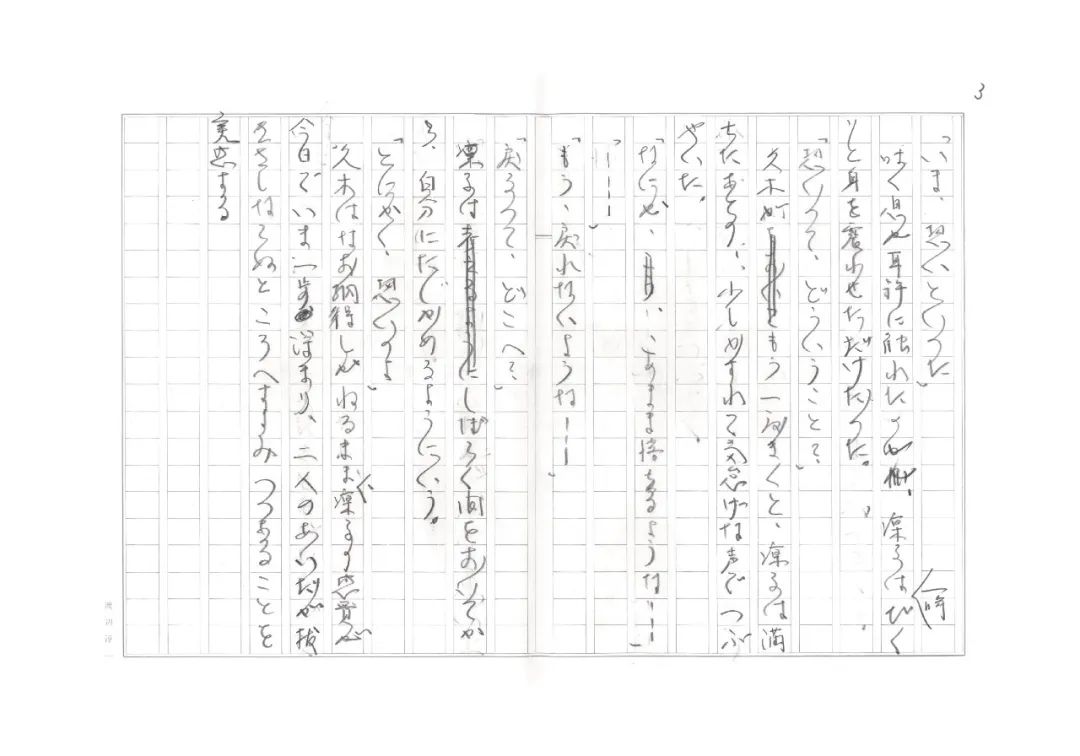 3
「いま、恐いといった」
呟く息が耳許に触れたのか、一瞬、凜子はぴく
りと身を震わせただけだった。
「恐いって、どういうこと?」
久木がもう一度きくと、凜子は満
ちたあとの、少しかすれて気怠げな声でつぶ
やいた。
「なにか、このまま堕ちるような---」
「----」
「もう、戻れないような---」
「戻るって、どこへ?」
凜子はしばらく間をおいてか
ら、自分にたしかめるようにいう。
「とにかく、恐いのよ」
久木はなお納得しかねるまま、凜子の感覚が
今日でいま一歩深まり、二人のあいだが抜
きさしならぬところへすすみつつあることを
実感する